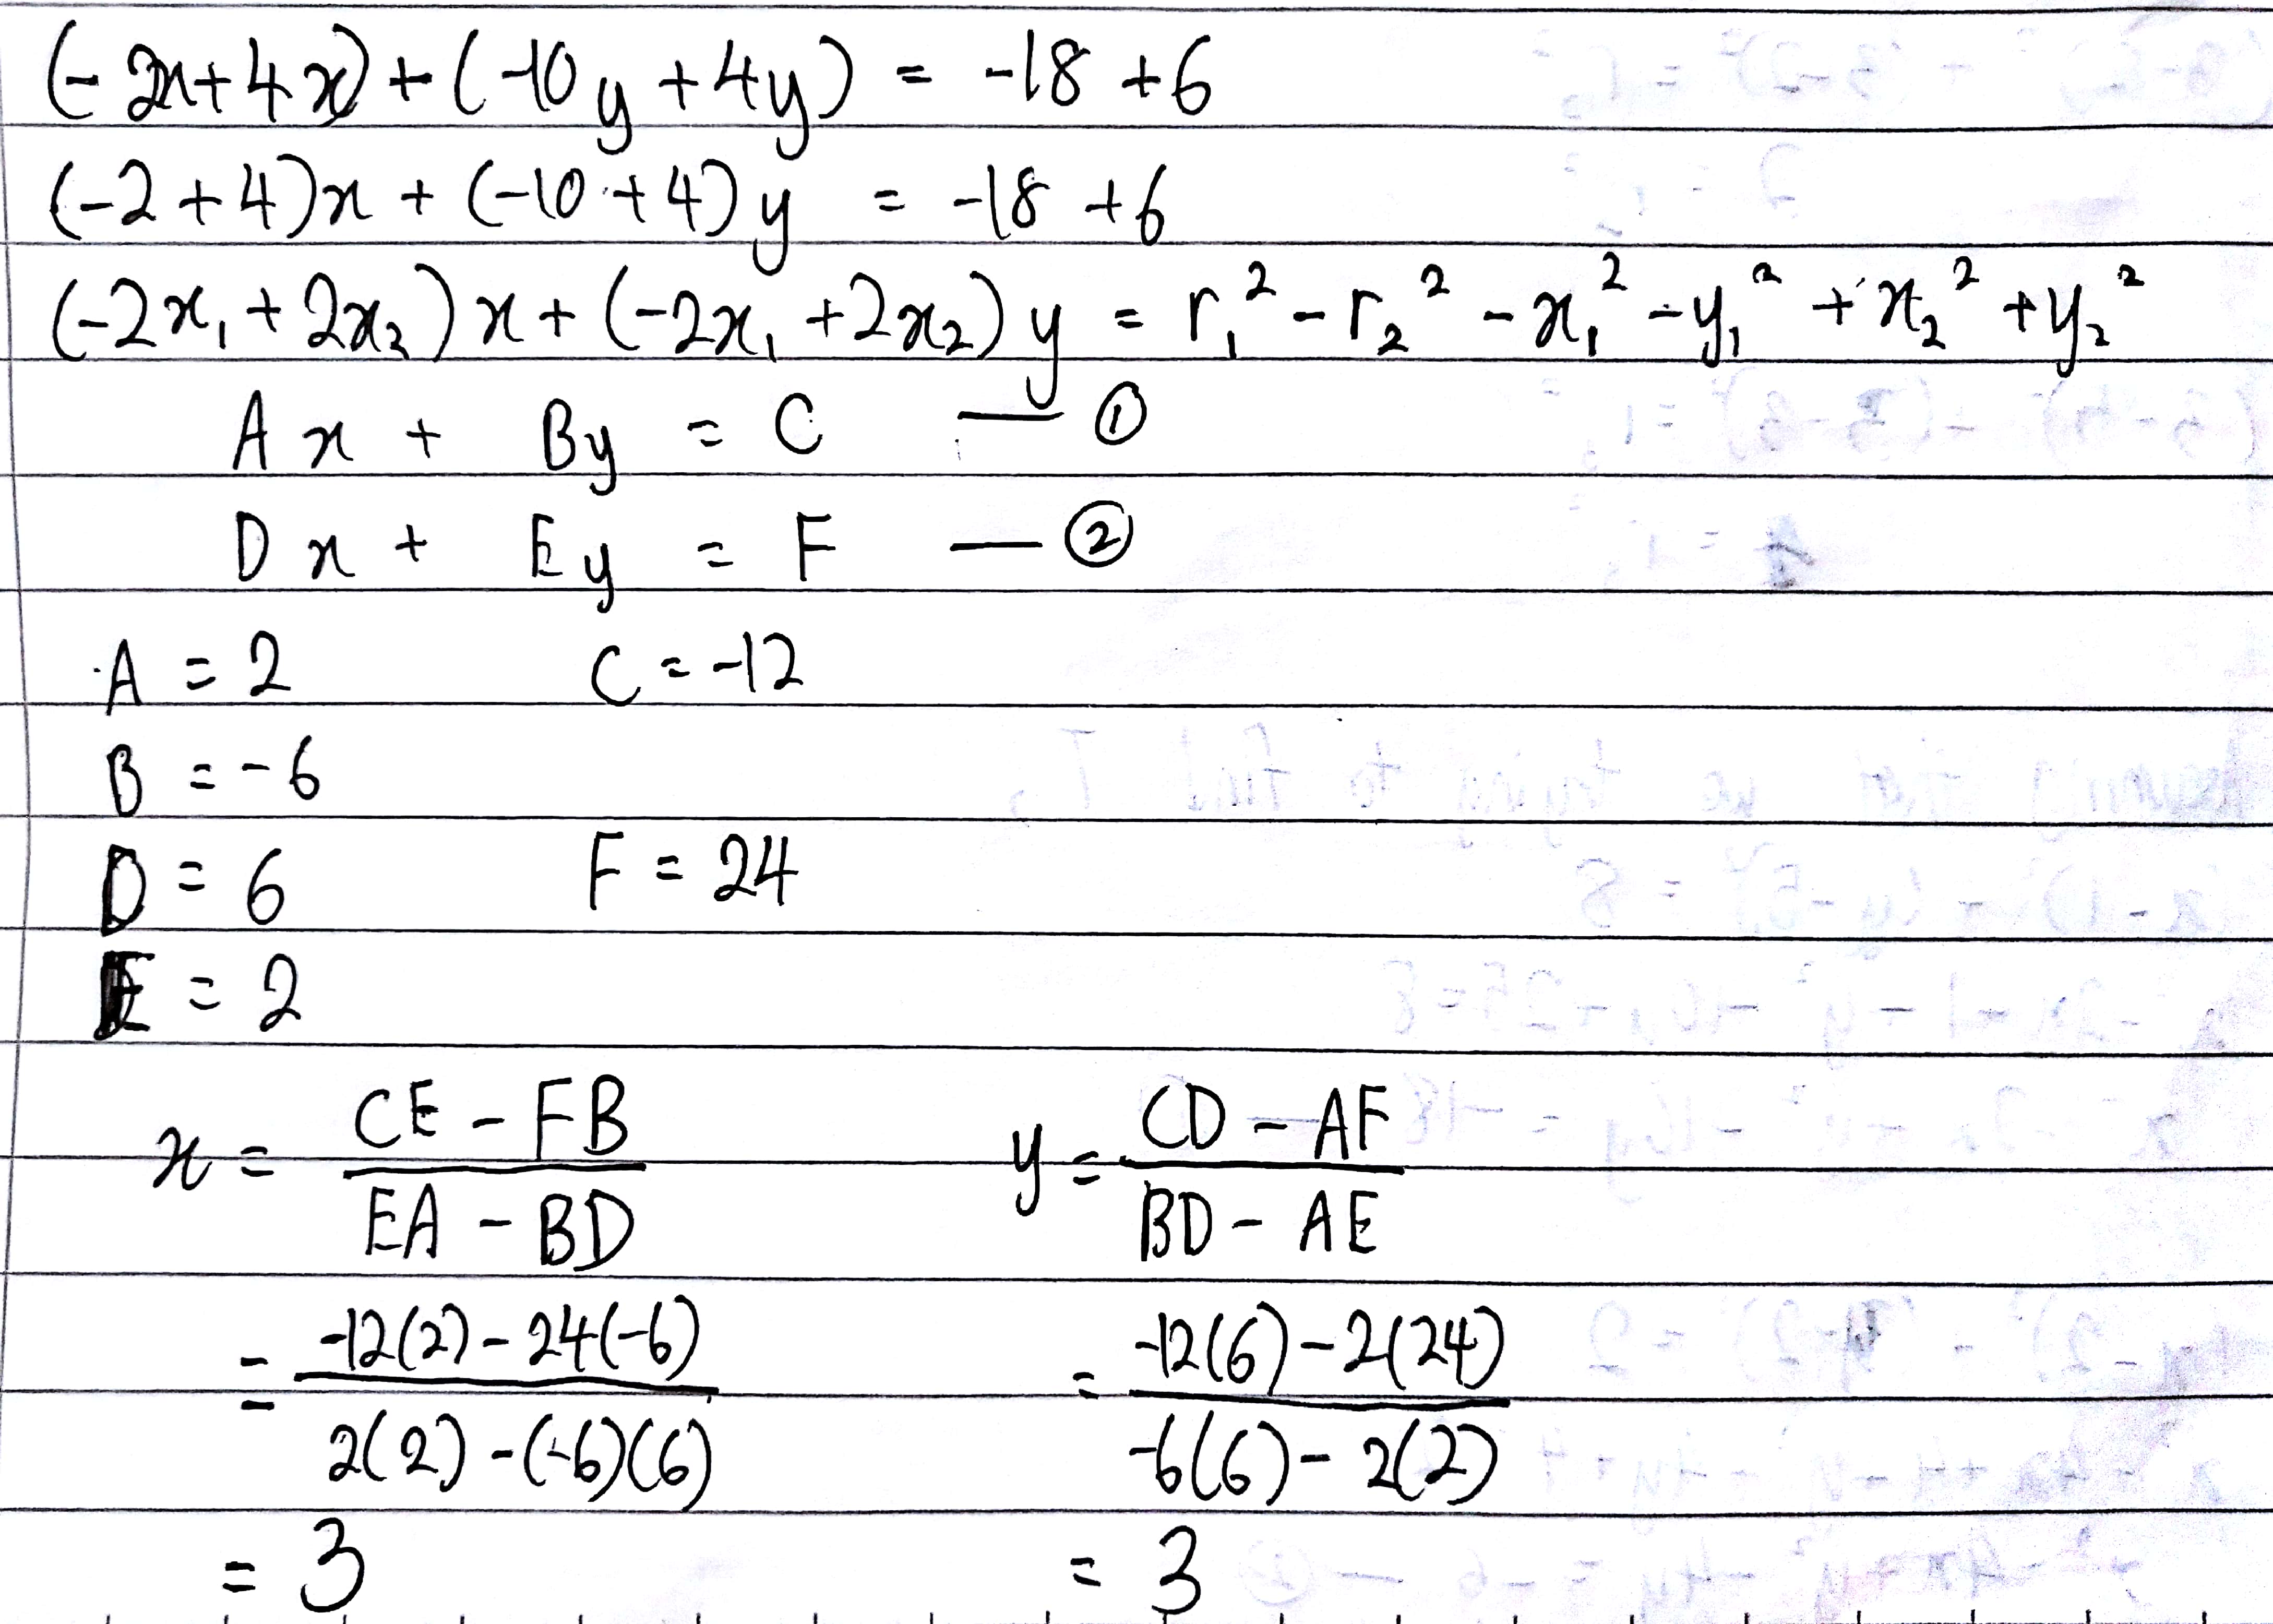 (-2x+4x)+(-10y+4y) = -18+6
(-2+4)x+(-10+4)y = -18+6
(-2x₁+2x₂)x+(-2x₁+2x₂)y = r₁²-r₂²-x₁²-y₁²+x₂²+y₂²
Ax + By = C — ①
Dx + Ey = F — ②
A = 2 C = -12
B = -6
D = 6 F = 24
E = 2
x = (CE - FB)/(EA - BD) y = (CD - AF)/(BD - AE)
= (-12(2)-24(-6))/(2(2)-(-6)(6)) = (-12(6)-2(24))/(-6(6)-2(2))
= 3 = 3